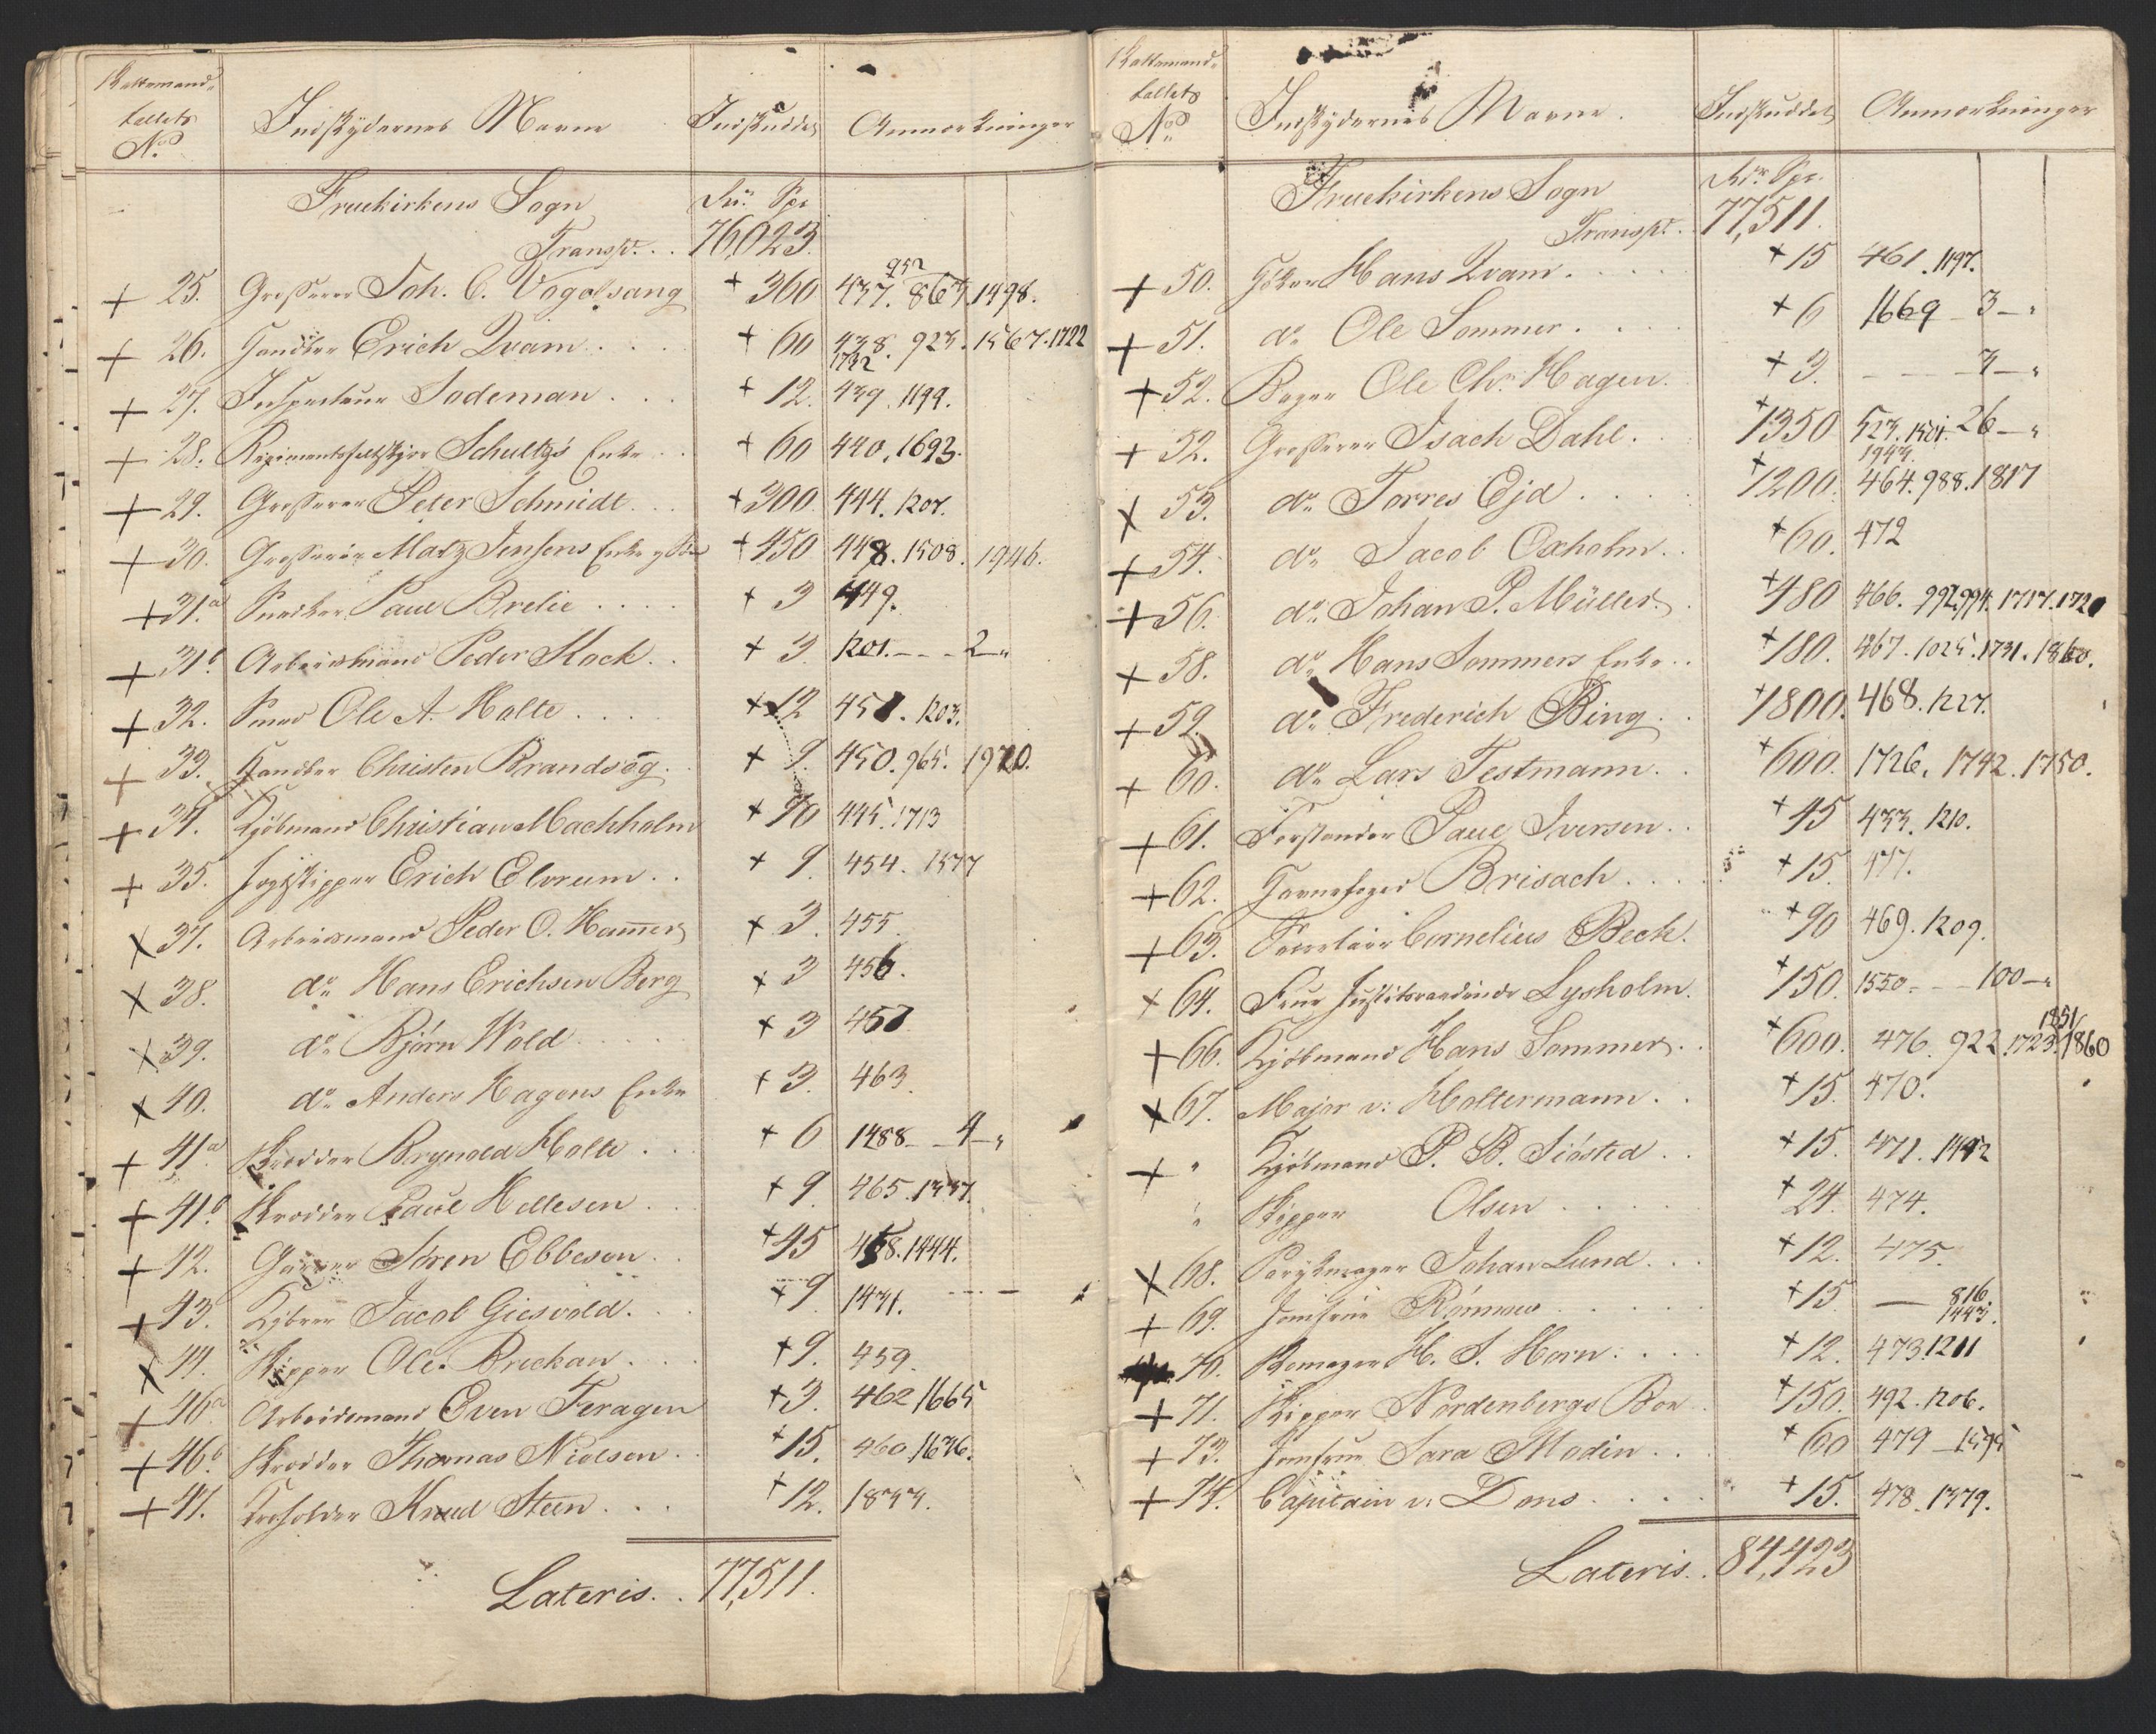 Skattemand-
tallets
No.
Indskydernes Navne
Indskuddet
Anmærkninger
Fruekirkens Sogn
Rd. Spe
Transpt. . . 76,023.
+ 25. Grosserer Joh. C. Vogelsang + 360 437. 863. 952 1498.
+ 26. Handler Erich Qvam . . . + 60 438. 923. 1567. 1722
1732
+ 27. Inspecteur Sodeman . . . + 12. 439. 1199.
+ 28. Regimentsfeltskjær Schultz's Enke . . + 60 440. 1693.
+ 29. Grosserer Peter Schmidt . . . + 300. 444. 1207.
+ 30. Grosserer Matz Jensens Enke + 450 448. 1508. 1946.
+ 31.a Snedker Paul Brelie . . . . + 3 449.
+ 31.b Arbeidsmand Peder Kock . . + 3. 1201. - - - 2 -"
+ 32. Smed Ole A. Holte . . . . + 12 451. 1203.
+ 33. Handler Christen Brandsög. + 9. 450. 965. 1970.
+ 34. Kjöbmand Christian Machholm + 90 445. 1713
+ 35. Jagtskipper Erich Elvrum . . + 9. 454. 1577
x 37. Arbeidsmand Peder O. Hammer + 3. 455.
x 38. do. Hans Erichsen Berg + 3 456.
x 39. do. Björn Wold . . . . + 3 457
x 40. do. Anders Hagens Enke + 3. 463.
+ 41.a Skrædder Brynold Holte . . . + 6 1488 - - 4 -"
+ 41.b Skrædder Paul Hellesen . . . + 9. 465. 1337.
+ 42. Garver Sören Ebbesen . . + 45 458. 1444.
+ 43. Jacob Giesvold. . . + 9. 1431.
x 44. Skipper Ole Brickan . . . + 9. 459.
+ 46.a Arbeidsmand Even Feragen + 3. 462 1665
+ 46.b Skrædder Thomas Nielsen . . + 15. 460. 1676.
+ 47. Knud Steen . . . + 12. 1833.
Lateris . . 77,511.
Skattemand-
tallets
No.
Indskydernes Navne.
Indskuddet
Anmærkninger
Fruekirkens Sogn
Rd. Spe.
Transpt. . 77,511.
+ 50. Höker Hans Qvam . . . . . + 15 461. 1197.
+ 51. do. Ole Sommer . . . . + 6 1669 - 3 -"
+ 52. Bager Ole Chr. Hagen. + 3. - - - 3 -"
+ 52. Grosserer Isach Dahl . . + 1350 523. 1501. 26 -"
1943.
x 53. do. Torres Ejd . . . . + 1200. 464. 988. 1817
+ 54. do. Jacob Oxholm . . + 60. 472
+ 56. do. Johan P. Müller. . + 480 466. 992. 994. 1717. 1720
+ 58. do. Hans Sommers Enke . . + 180. 467. 1025. 1731. 1860.
+ 59. do. Frederich Bing . . + 1800. 468. 1227.
+ 60. do. Lars Testmann . . + 600. 1726. 1742. 1750.
+ 61. Forstander Paul Iversen . . + 45 433. 1210.
+ 62. Havnefoged Brisach . . . . + 15. 477.
+ 63. Secretair Cornelius Beck. + 90 469. 1209.
+ 64. Frue Justitsraadinde Lysholm. + 150. 1550. - - 100 -"
+ 66. Kjöbmand Hans Sommer . . + 600. 476. 922. 1723. 1851/1860
x 67. Major v: Holtermann . . + 15. 470.
+ " Kjöbmand P. B. Siösted . . + 15. 471. 1442
" Skipper Olsen . . . . . + 24. 474.
x 68. Parykmager Johan Lund . . . + 12. 475.
+ 69. Jomfrue Rönnow . . . . . + 15 — 816
1443.
70. Skomager H. J. Horn . . . . + 12. 473. 1211
+ 71. Skipper Nordenbergs Boe . + 150. 492. 1206.
+ 73. Jomfrue Sara Modin . . . + 60 479 - 1575
+ 74. Capitain v: Dons . . . . . + 15. 478. 1379.
Lateris . . 84,423